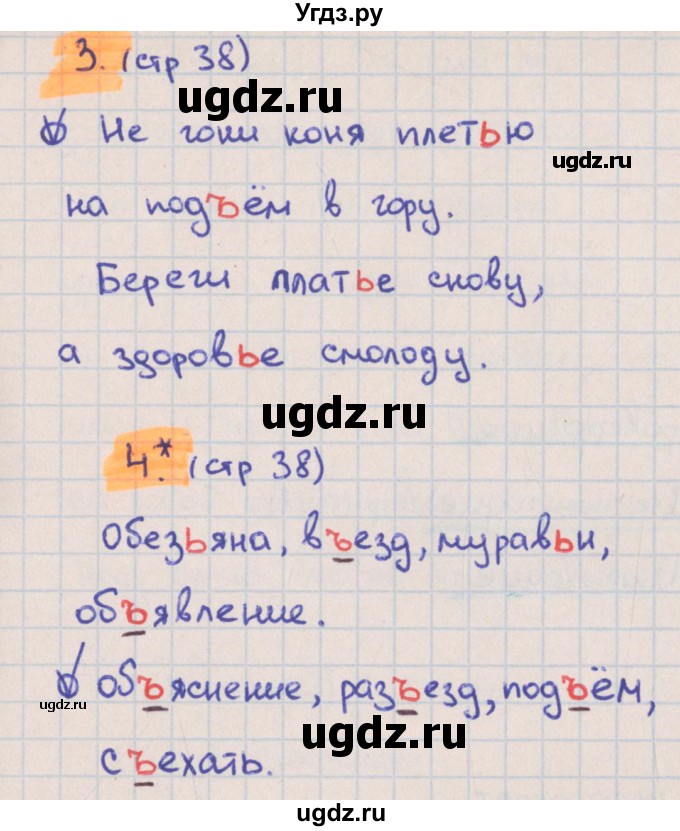 Угдз.ру
3. (стр 38)
ugdz.ru
Не гони коня плетью
ugdz.ru
на подъём в гору.
Береги платье снову,
а здоровье смолоду.
ugdz.ru
4.* (стр 38)
Обезьяна, въезд, муравьи,
объявление.
объяснение, разъезд, подъём,
ugdz.ru
съехать.
ugdz.ru
ugdz.ru